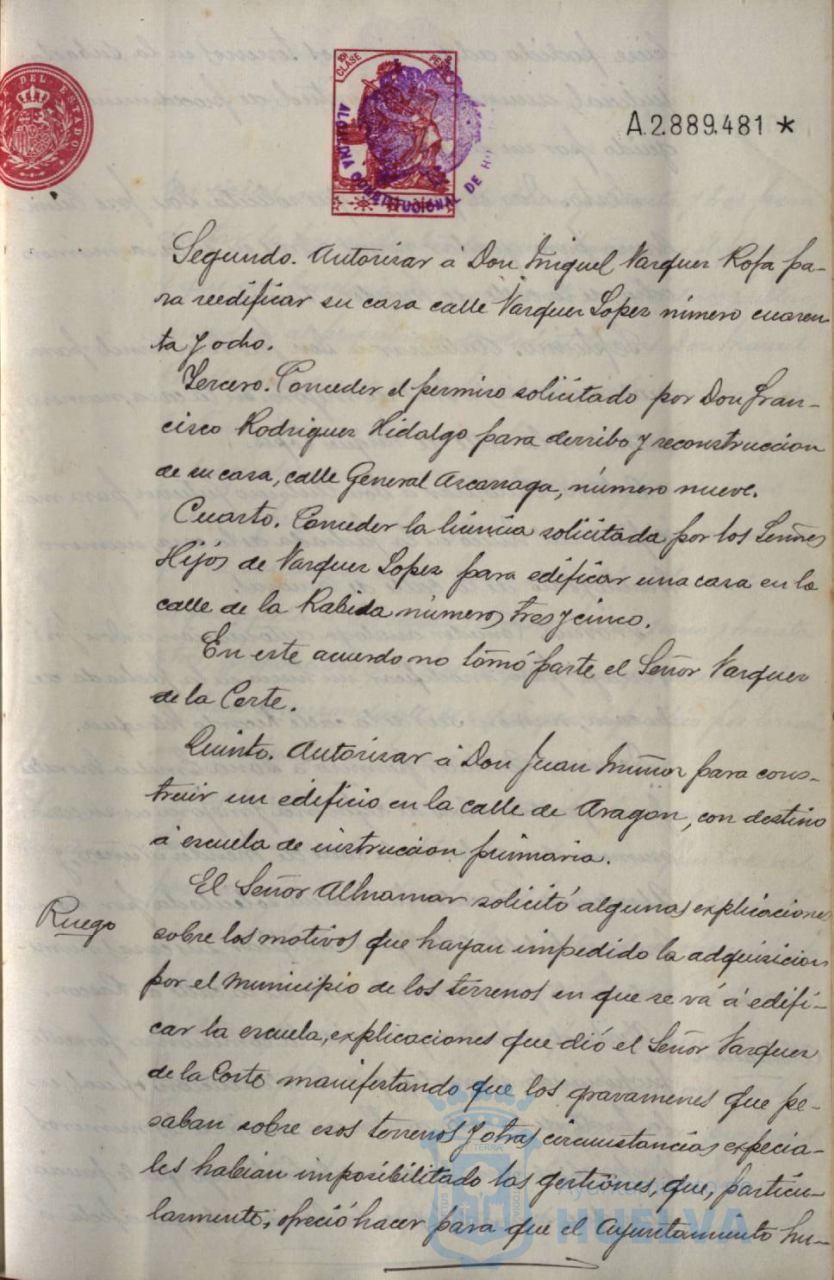 DEL ESTADO
10ª CLASE
PESETA
ALCALDIA CONSTITUCIONAL DE H
A.2.889.481 *
Segundo. Autorizar á Don Miguel Vazquez Rofa pa-
ra reedificar su casa calle Vazquez Lopez número cuaren
ta y ocho.
Tercero. Conceder el permiso solicitado por Don Fran-
cisco Rodriguez Hidalgo para derribo y reconstruccion
de su casa, calle General Azcarraga, número nueve.
Cuarto. Conceder la licencia solicitada por los Señores
Hijos de Vazquez Lopez para edificar una casa en la
calle de la Rabida números tres y cinco.
En este acuerdo no tomó parte el Señor Vazquez
de la Corte.
Quinto. Autorizar á Don Juan Muñoz para cons-
truir un edificio en la calle de Aragon, con destino
á escuela de instruccion primaria.
Ruego
El Señor Alhnamar solicitó algunas explicaciones
sobre los motivos que hayan impedido la adquisicion
por el Municipio de los terrenos en que se vá á edifi-
car la escuela, explicaciones que dió el Señor Vazquez
de la Corte manifestando que los gravamenes que pe-
saban sobre esos terrenos y otras circunstancias especia-
les habian imposibilitado las gestiones, que, particu-
larmente, ofreció hacer para que el Ayuntamiento hu-
HUELVA